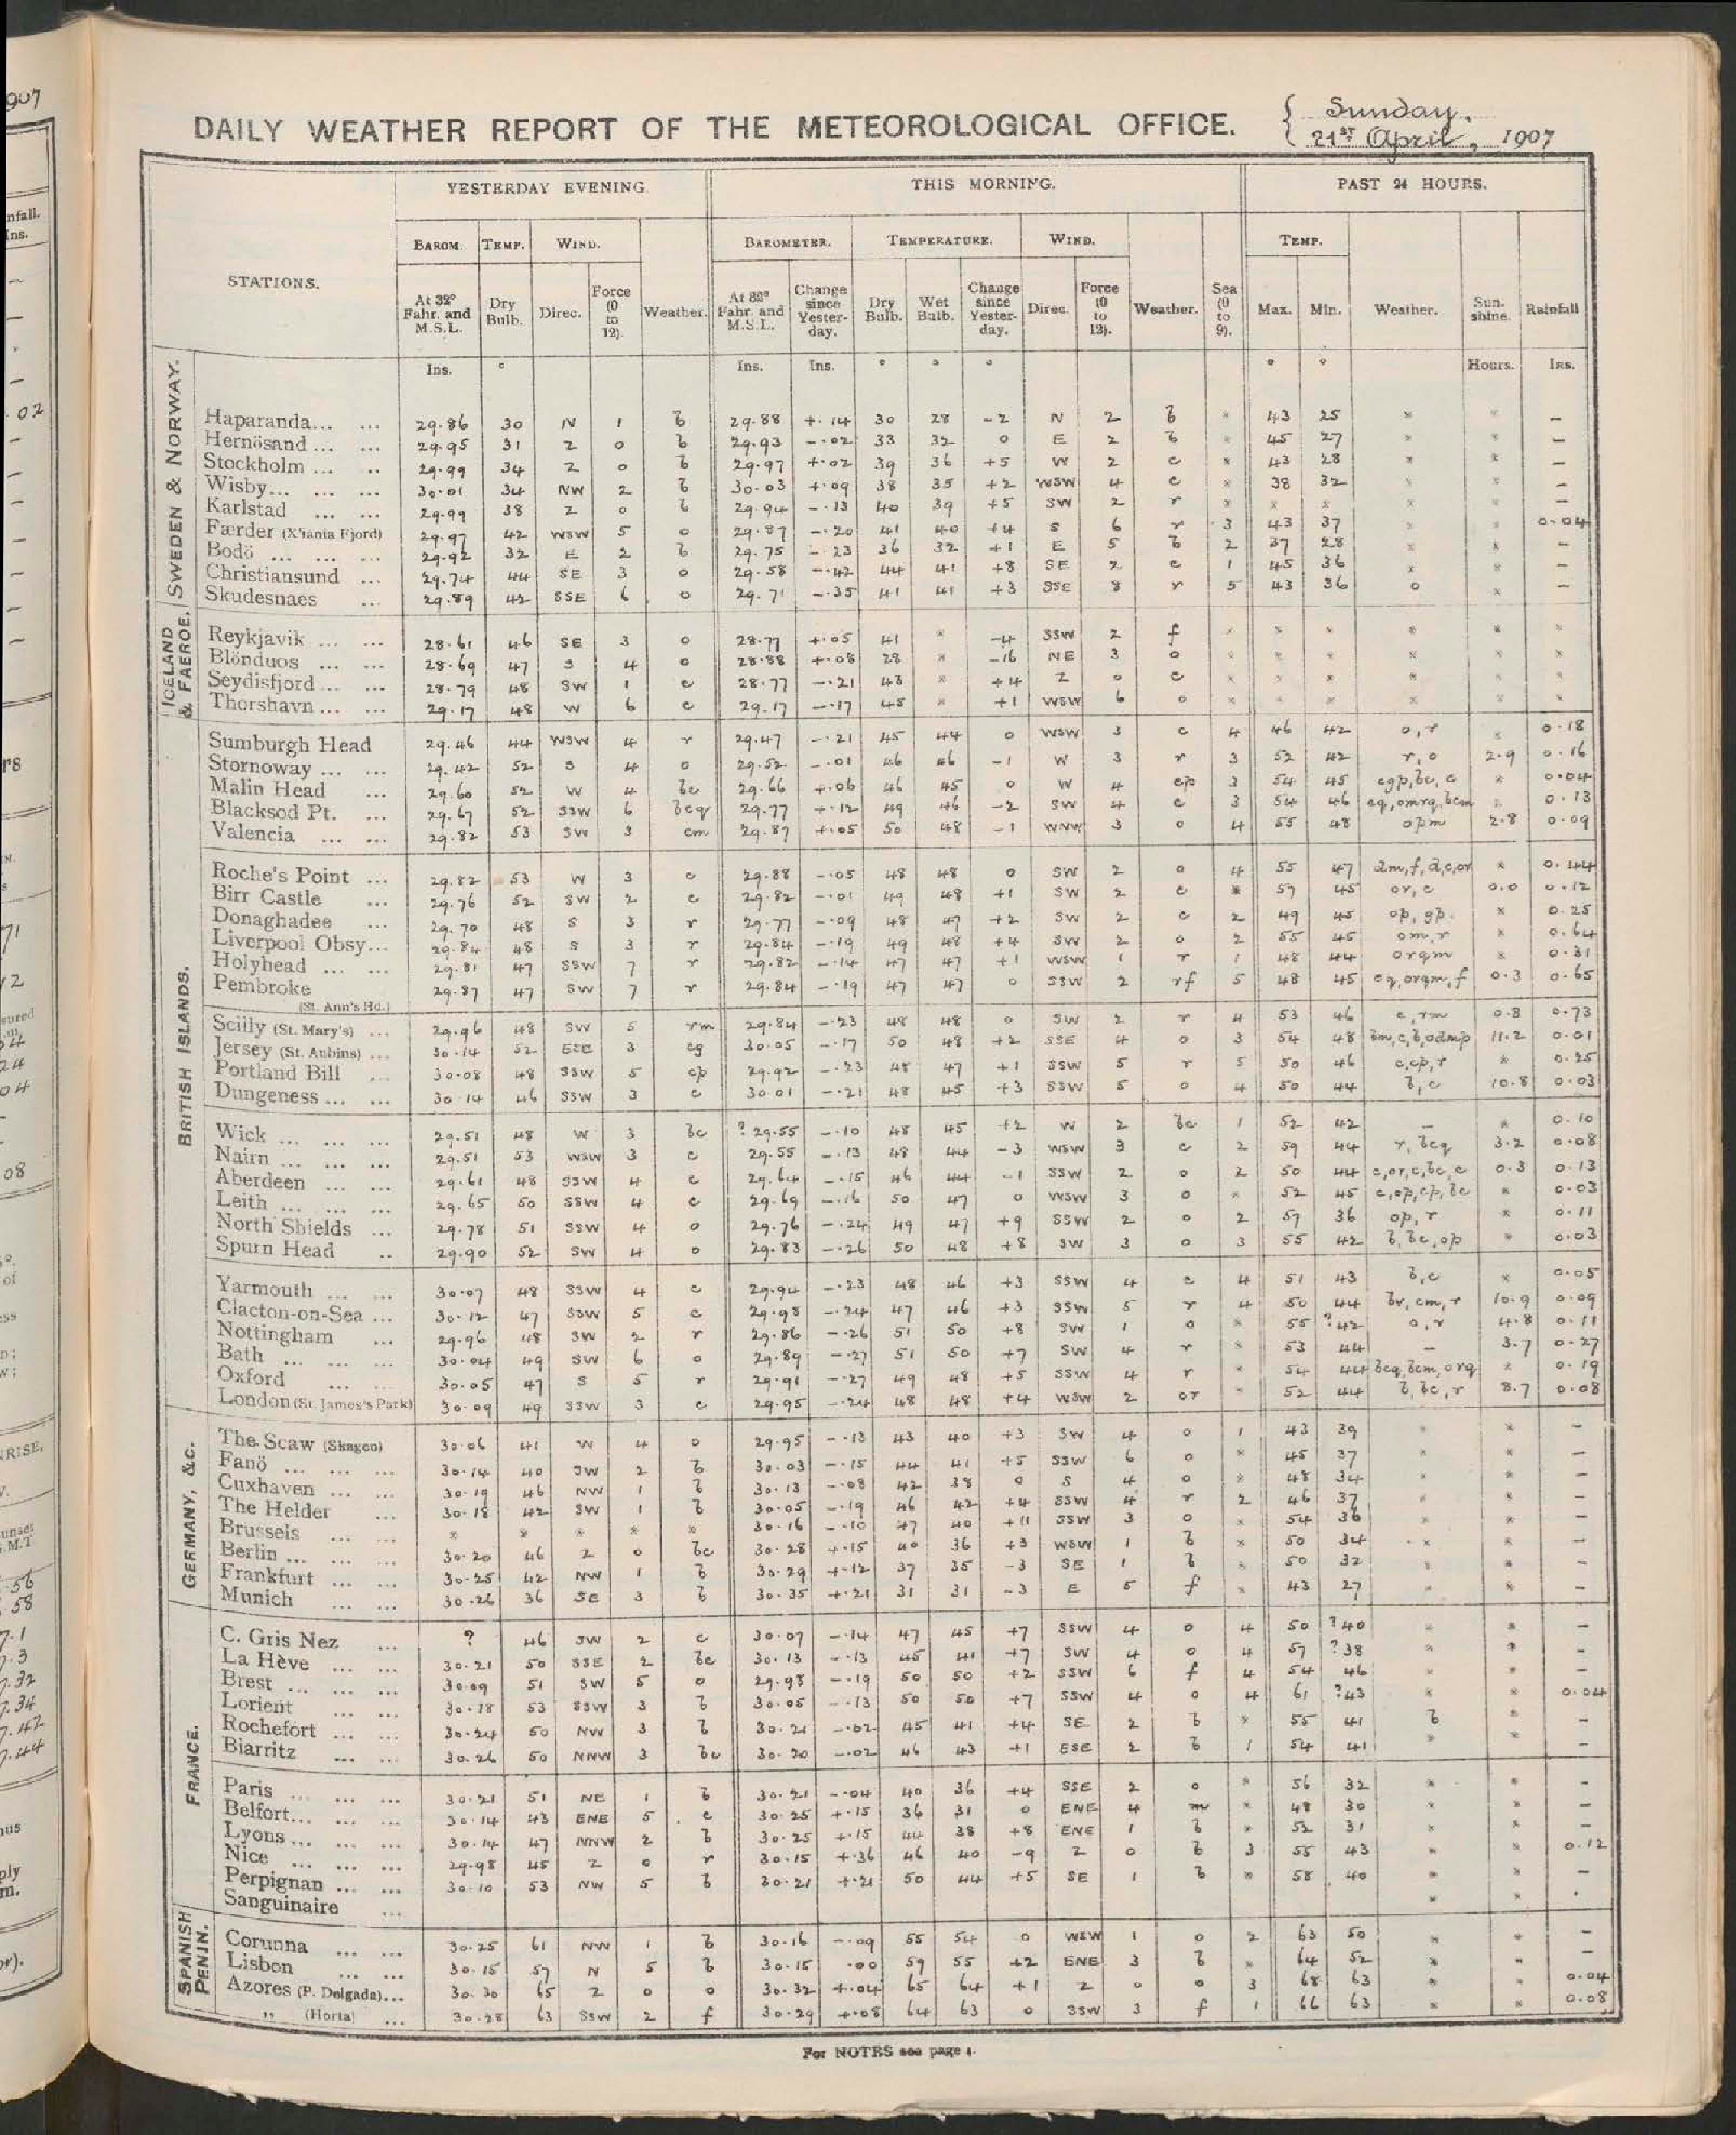 DAILY WEATHER REPORT OF THE METEOROLOGICAL OFFICE. { Sunday, 21ST April, 1907
STATIONS. YESTERDAY EVENING. THIS MORNING. PAST 24 HOURS.
BAROM. TEMP. WIND. Weather. BAROMETER. TEMPERATURE. WIND. Weather. Sea (0 to 9). TEMP. Weather. Sunshine. Rainfall
At 32° Fahr. and M.S.L. Dry Bulb. Direc. Force (0 to 12). At 32° Fahr. and M.S.L. Change since Yester-day. Dry Bulb. Wet Bulb. Change since Yester-day. Direc. Force (0 to 12). Max. Min.
Ins. ° Ins. Ins. ° ° ° ° ° Hours. Ins.
SWEDEN & NORWAY.
Haparanda... ... 29.86 30 N 1 b 29.88 +.14 30 28 -2 N 2 b * 43 25 * * –
Hernösand ... ... 29.95 31 Z 0 b 29.93 -.02 33 32 0 E 2 b * 45 27 * * –
Stockholm ... .. 29.99 34 Z 0 b 29.97 +.02 39 36 +5 W 2 c * 43 28 * * –
Wisby... ... ... 30.01 34 NW 2 b 30.03 +.09 38 35 +2 WSW 4 c * 38 32 * * –
Karlstad ... ... 29.99 38 Z 0 b 29.94 -.13 40 39 +5 SW 2 r * * * * * –
Færder (X'iania Fjord) 29.97 42 WSW 5 o 29.87 -.20 41 40 +4 S 6 r 3 43 37 * * 0.04
Bodö ... ... ... 29.92 32 E 2 b 29.75 -.23 36 32 +1 E 5 b 2 37 28 * * –
Christiansund ... 29.74 44 SE 3 o 29.58 -.42 44 41 +8 SE 2 c 1 45 36 * * –
Skudesnaes ... 29.89 42 SSE 6 o 29.71 -.35 41 41 +3 SSE 8 r 5 43 36 o * –
ICELAND & FAEROE.
Reykjavik ... ... 28.61 46 SE 3 o 28.77 +.05 41 * -4 SSW 2 f * * * * * *
Blönduos ... ... 28.69 47 S 4 o 28.88 +.08 28 * -16 NE 3 o * * * * * *
Seydisfjord ... ... 28.79 48 SW 1 c 28.77 -.21 43 * +4 Z 0 c * * * * * *
Thorshavn ... ... 29.17 48 W 6 c 29.17 -.17 45 * +1 WSW 6 o * * * * * *
BRITISH ISLANDS.
Sumburgh Head 29.46 44 WSW 4 r 29.47 -.21 45 44 0 WSW 3 c 4 46 42 o,r * 0.18
Stornoway ... ... 29.42 52 S 4 o 29.52 -.01 46 46 -1 W 3 r 3 52 42 r,o 2.9 0.16
Malin Head ... 29.60 52 W 4 bc 29.66 +.06 46 45 0 W 4 cp 3 54 45 cgp,bc,c * 0.04
Blacksod Pt. ... 29.67 52 SSW 6 bcq 29.77 +.12 49 46 -2 SW 4 c 3 54 46 cq,omrq,bcm * 0.13
Valencia ... ... 29.82 53 SW 3 cm 29.87 +.05 50 48 -1 WNW 3 o 4 55 48 opm 2.8 0.09
Roche's Point ... 29.82 53 W 3 c 29.88 -.05 48 48 0 SW 2 o 4 55 47 dm,f,d,c,or * 0.44
Birr Castle ... 29.76 52 SW 2 c 29.82 -.01 49 48 +1 SW 2 c * 57 45 or,c 0.0 0.12
Donaghadee ... 29.70 48 S 3 r 29.77 -.09 48 47 +2 SW 2 c 2 49 45 op, gp. * 0.25
Liverpool Obsy... 29.84 48 S 3 r 29.84 -.19 49 48 +4 SW 2 o 2 55 45 om,r * 0.64
Holyhead ... ... 29.81 47 SSW 7 r 29.82 -.14 47 47 +1 WSW 1 r 1 48 44 orqm * 0.31
Pembroke (St. Ann's Hd.) 29.87 47 SW 7 r 29.84 -.19 47 47 0 SSW 2 rf 5 48 45 cq,orqm,f 0.3 0.65
Scilly (St. Mary's) ... 29.96 48 SW 5 rm 29.84 -.23 48 48 0 SW 2 r 4 53 46 c,rm 0.8 0.73
Jersey (St. Aubins) ... 30.14 52 ESE 3 cg 30.05 -.17 50 48 +2 SSE 4 o 3 54 48 bm,c,b,odmp 11.2 0.01
Portland Bill ... 30.08 48 SSW 5 cp 29.92 -.23 48 47 +1 SSW 5 r 5 50 46 c,cp,r * 0.25
Dungeness ... ... 30.14 46 SSW 3 c 30.01 -.21 48 45 +3 SSW 5 o 4 50 44 b,c 10.8 0.03
Wick ... ... ... 29.51 48 W 3 bc ? 29.55 -.10 48 45 +2 W 2 bc 1 52 42 – * 0.10
Nairn ... ... ... 29.51 53 WSW 3 c 29.55 -.13 48 44 -3 WSW 3 c 2 59 44 r, bcq 3.2 0.08
Aberdeen ... ... 29.61 48 SSW 4 c 29.64 -.15 46 44 -1 SSW 2 o 2 50 44 c,or,c,bc,c 0.3 0.13
Leith ... ... ... 29.65 50 SSW 4 c 29.69 -.16 50 47 0 WSW 3 o * 52 45 c,op,cp,bc * 0.03
North Shields ... 29.78 51 SSW 4 o 29.76 -.24 49 47 +9 SSW 2 o 2 57 36 op, r * 0.11
Spurn Head .. 29.90 52 SW 4 o 29.83 -.26 50 48 +8 SW 3 o 3 55 42 b,bc,op * 0.03
Yarmouth ... ... 30.07 48 SSW 4 c 29.94 -.23 48 46 +3 SSW 4 c 4 51 43 b,c * 0.05
Clacton-on-Sea ... 30.12 47 SSW 5 c 29.98 -.24 47 46 +3 SSW 5 r 4 50 44 bv,cm,r 10.9 0.09
Nottingham ... 29.96 48 SW 2 r 29.86 -.26 51 50 +8 SW 1 o * 55 ?42 o,r 4.8 0.11
Bath ... ... ... 30.04 49 SW 6 o 29.89 -.27 51 50 +7 SW 4 r * 53 44 – 3.7 0.27
Oxford ... ... 30.05 47 S 5 r 29.91 -.27 49 48 +5 SSW 4 r * 54 44 bcq,bcm,orq * 0.19
London (St. James's Park) 30.09 49 SSW 3 c 29.95 -.24 48 48 +4 WSW 2 or * 52 44 b,bc,r 8.7 0.08
GERMANY, &c.
The Scaw (Skagen) 30.06 41 W 4 o 29.95 -.13 43 40 +3 SW 4 o 1 43 39 * * –
Fanö ... ... ... 30.14 40 SW 2 b 30.03 -.15 44 41 +5 SSW 6 o * 45 37 * * –
Cuxhaven ... ... 30.19 46 NW 1 b 30.13 -.08 42 38 0 S 4 o * 48 34 * * –
The Helder ... 30.18 42 SW 1 b 30.05 -.19 46 42 +4 SSW 4 r 2 46 37 * * –
Brussels ... ... * * * * 30.16 -.10 47 40 +11 SSW 3 o * 54 36 * * –
Berlin ... ... ... 30.20 46 Z 0 bc 30.28 +.15 40 36 +3 WSW 1 b * 50 34 * * –
Frankfurt ... ... 30.25 42 NW 1 b 30.29 +.12 37 35 -3 SE 1 b * 50 32 * * –
Munich ... ... 30.26 36 SE 3 b 30.35 +.21 31 31 -3 E 5 f * 43 27 * * –
FRANCE.
C. Gris Nez ... ? 46 SW 2 c 30.07 -.14 47 45 +7 SSW 4 o 4 50 ?40 * * –
La Hève ... ... 30.21 50 SSE 2 bc 30.13 -.13 45 41 +7 SW 4 o 4 57 ?38 * * –
Brest ... ... ... 30.09 51 SW 5 o 29.98 -.19 50 50 +2 SSW 6 f 4 54 46 * * –
Lorient ... ... 30.18 53 SSW 3 b 30.05 -.13 50 50 +7 SSW 4 o 4 61 ?43 * * 0.04
Rochefort ... ... 30.24 50 NW 3 b 30.21 -.02 45 41 +4 SE 2 b * 55 41 b * –
Biarritz ... ... 30.26 50 NNW 3 bc 30.20 -.02 46 43 +1 ESE 2 b 1 54 41 * –
Paris ... ... ... 30.21 51 NE 1 b 30.21 -.04 40 36 +4 SSE 2 o * 56 32 * * –
Belfort... ... ... 30.14 43 ENE 5 c 30.25 +.15 36 31 0 ENE 4 m * 48 30 * * –
Lyons ... ... ... 30.14 47 NNW 2 b 30.25 +.15 44 38 +8 ENE 1 b * 52 31 * * –
Nice ... ... ... 29.98 45 Z 0 r 30.15 +.36 46 40 -9 Z 0 b 3 55 43 * * 0.12
Perpignan ... ... 30.10 53 NW 5 b 30.21 +.21 50 44 +5 SE 1 b * 58 40 * * –
Sanguinaire ... * * .
SPANISH PENIN.
Corunna ... ... 30.25 61 NW 1 b 30.16 -.09 55 54 0 WSW 1 o 2 63 50 * * –
Lisbon ... ... 30.15 57 N 5 b 30.15 .00 59 55 +2 ENE 3 b * 64 52 * * –
Azores (P. Delgada)... 30.30 65 Z 0 o 30.32 +.04 65 64 +1 Z 0 o 3 68 63 * * 0.04
,, (Horta) ... 30.28 63 SSW 2 f 30.29 +.08 64 63 0 SSW 3 f 1 66 63 * * 0.08
For NOTES see page 4.